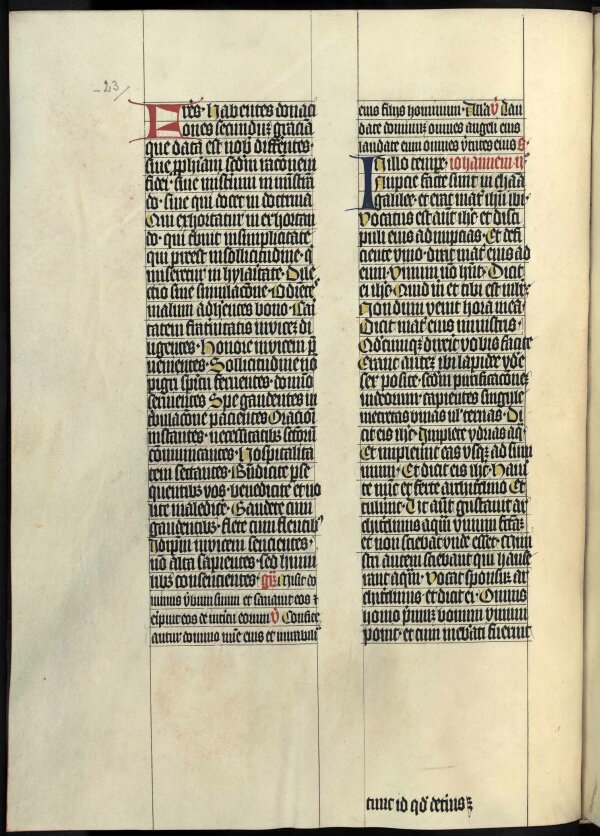 23
Fres. Habentes donaci
ones secundum graciam
que data est nobis differentes.
siue prophiam secdm racionem
fidei. siue misterium in ministra
do. siue qui docet in doctrina
Qui exhortatur in exhortan
do. qui tribuit in simplicitate
qui preest in sollicitudine. q
miseretur in hylaritate. Dile
ctio sine simulacone. Odiete
malum adherentes bono. Cari
tatem fraternitatis inuicem di
ligentes. Honore inuicem p
uenientes. Sollicitudine no
pigri spiritu feruentes. domino
seruientes Spe gaudentes in
tribulacione pacientes Oracioni
instantes. necessitatibus sanctorum
communicantes. Hospitalita
tem sectantes. Benedicite perse
quentibus vos. benedicite et no
lite maledicere. Gaudere cum
gaudentibus. flere cum flentibus
Idipsum inuicem sencientes.
no alta sapientes. sed humi
libus consencientes. Gr Misit do
minus verbum suum et sanauit eos et
eripuit eos de interitu eorum V Confite
antur domino misericordie eius et mirabilia
eius filijs hominum. Alla V Lau
date dominum omnes angeli eius
laudate eum omnes virtutes eius S
In illo tempore. iohannem ii
Nupcie facte sunt in chana
galilee. et erat mater ihesu ibi.
Vocatus est autem ihesus et disci
puli eius ad nupcias. Et defi
ciente vino. dixit mater eius ad
eum. Vinum non habent. Dicit
ei ihesus. Quid michi et tibi est mulier.
Nondum venit hora mea.
Dicit mater eius ministris.
Quodcumque dixerit vobis facite
Erant autem ibi lapidee ydrie
sex posite. secundum purificacionem
iudeorum capientes singule
metretas binas vel ternas. Di
cit eis ihesus. Implete ydrias aqua.
Et impleuerunt eas vsque ad sum
mum. Et dicit eis ihesus. Hauri
te nunc et ferte architriclino Et
tulerunt. Ut autem gustauit ar
chitriclinus aquam vinum factam.
et non sciebat vnde esset. mini
stri autem sciebant qui hause
rant aquam. Vocat sponsum ar
chitriclinus et dicit ei. Omnis
homo primum bonum vinum
ponit. et cum inebriati fuerint
tunc id quod deterius est